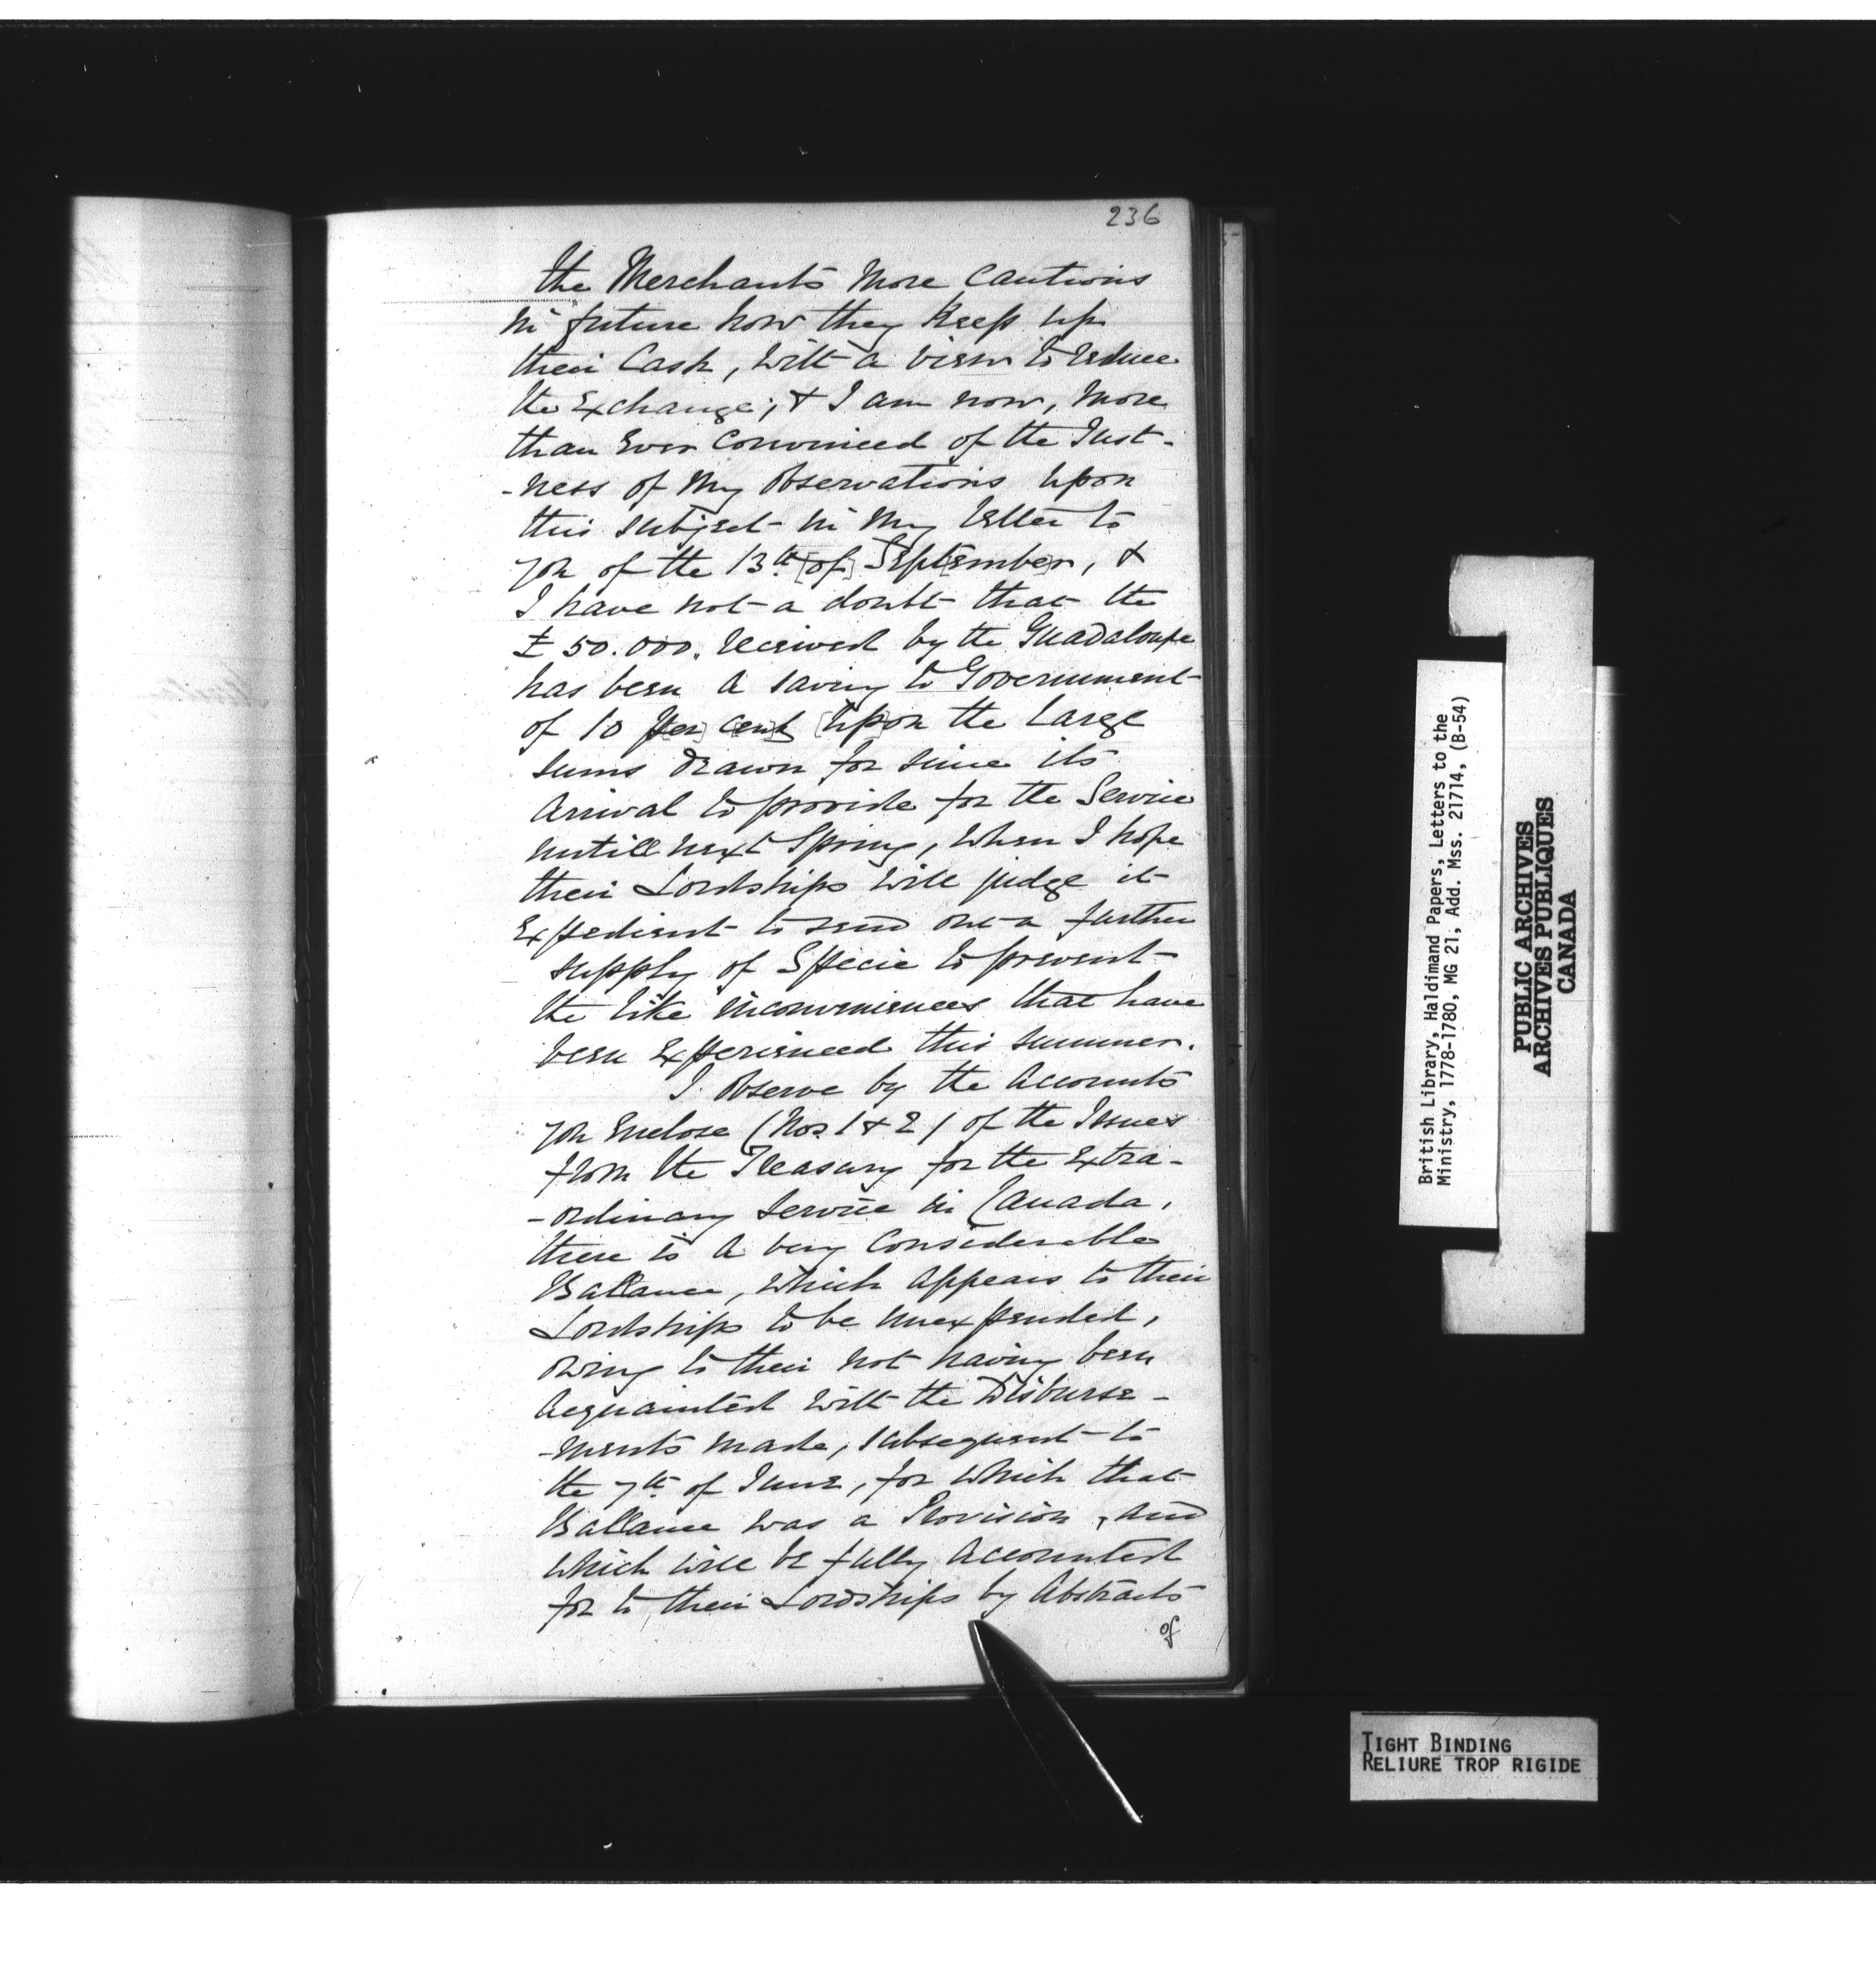 236
the Merchants More Cautious
in future how they Keep up
their Cash, with a view to reduce
the Exchange; & I am now, More
than Ever Convinced of the Just-
-ness of My Observations upon
this subject in My letter to
you of the 13th [of] Sept[ember], &
I have not a doubt that the
£50.000. received by the Guadaloupe
has been a saving to Government
of 10 Per Cent [up]on the large
sums drawn for since its
Arrival to provide for the Service
untill next Spring, when I hope
their Lordships will judge it
Expedient to send out a further
supply of Specie to prevent
the like inconveniences that have
been Experienced this summer.
I Observe by the Accounts
you Enclose (Nos. 1 & 2) of the Issues
from the Treasury for the Extra-
-ordinary Service in Canada,
there is a very Considerable
Ballance, which Appears to their
Lordships to be unexpended,
owing to their not having been
Acquainted with the Disburse-
-ments made, subsequent to
the 7th of June, for which that
Ballance was a Provision, and
which will be fully Accounted
for to their Lordships by Abstracts
of
British Library, Haldimand Papers, Letters to the
Ministry, 1778-1780, MG 21, Add. Mss. 21714, (B-54)
PUBLIC ARCHIVES
ARCHIVES PUBLIQUES
CANADA
TIGHT BINDING
RELIURE TROP RIGIDE